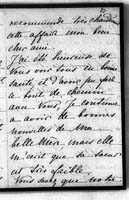 recommande très chaude
cette affaire mon bon
cher ami.
J'ai été heureuse de
vous voir tous en bonne
santé, et d'avoir pu faire
un bout de chemin
avec vous. Je continue
à avoir de bonnes
nouvelles de ma
belle Mère, mais elle
m'écrit que sa
est très faible.
Vous savez que notre